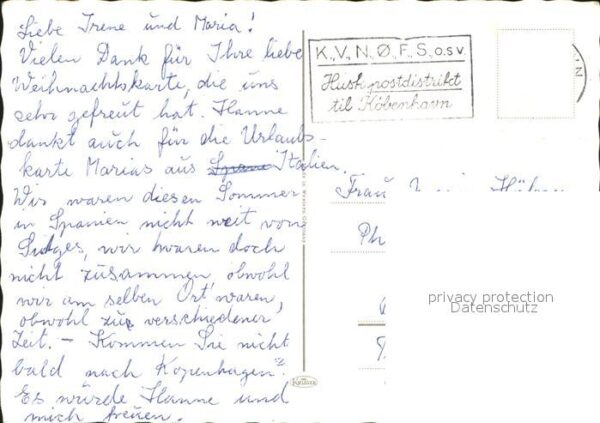 Liebe Irene und Maria!
Vielen Dank für Ihre liebe
Weihnachtskarte, die uns
sehr gefreut hat. Hanne
dankt auch für die Urlaubs-
karte Marias aus Italien.
Wir waren diesen Sommer
in Spanien nicht weit von
Sitges, wir waren doch
nicht zusammen, obwohl
wir am selben Ort waren,
obwohl zur verschiedener
Zeit. - Kommen Sie nicht
bald nach Kopenhagen?
Es würde Hanne und
mich freuen.
K.,V.,N.,Ø.,F.,S.,o.s.v.
Husk postdistrikt
til København
Frau
Ph
privacy protection
Datenschutz